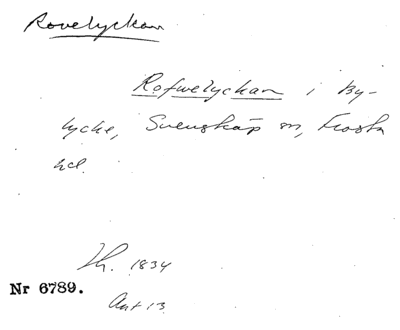 Rovelyckan
Rofwelyckan i By-
lycke, Svensköp sn, Frosta
hd.
Lh. 1834
Nr 6789.
Akt 13.